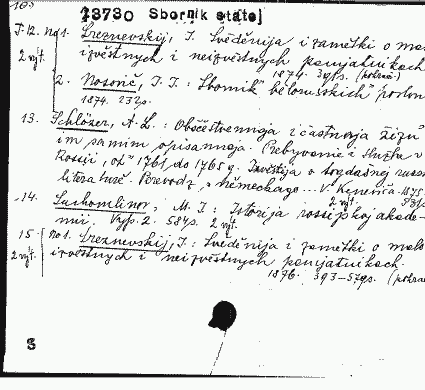 103
78730 Sborník statej
T.12. No 1. Sreznevskij, I. Svěděnija i zamětki o malo
2 výt. izvěstnych i neizvěstnych pamjatnikach.
1874. 391s. (pokrač.)
2. Nosovič, I. I.: Sbornik bělorusskich poslov
1874. 232s.
13. Schlözer, A. L.: Občestvennaja i častnaja žizň
im samim opisannaja. Prebyvanie i služba v
Rossii, ot 1761 do 1765 g. Izvěstija o togdašnej russ
literaturě. Perevod s německago V. Keneviča. 1875.
2 výt. 531s.
14. Suchomlinov, M. I.: Istorija rossijskoj akade-
mii. Vyp. 2. 584s. 2 výt.
15. No 1. Sreznevskij, I.: Svěděnija i zamětki o malo
2 výt. izvěstnych i neizvěstnych pamjatnikach.
1876. 393-579s. (pokrač
S